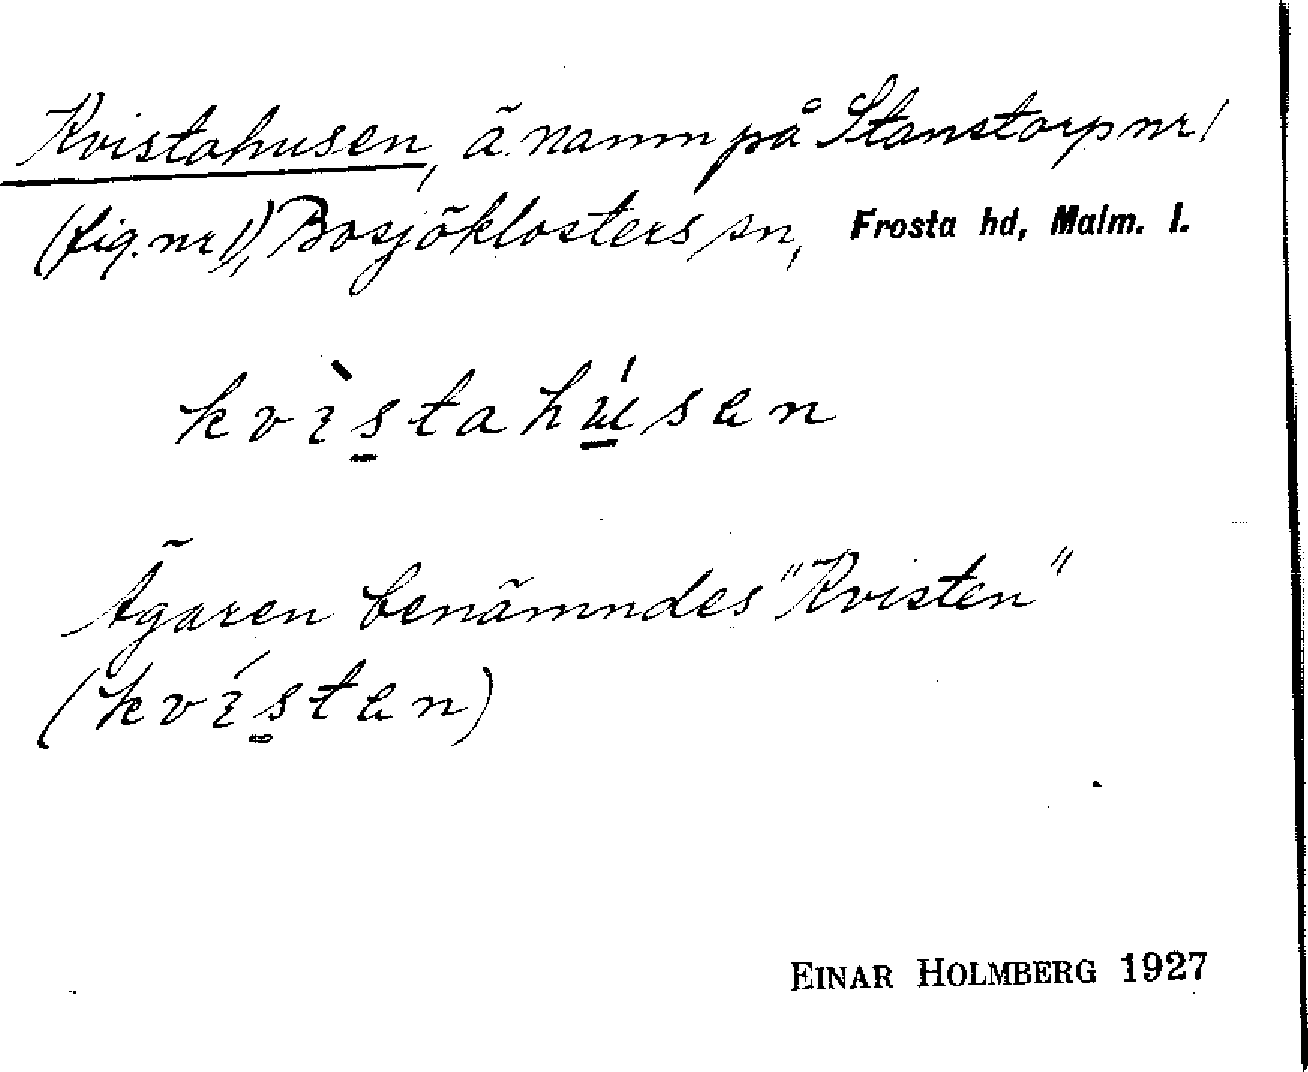 Kvistahusen, ä. namn på Stanstorp nr 1
(fig. nr 1), Bosjöklosters sn, Frosta hd, Malm. l.
kvìstahúsen
Ägaren benämndes "Kvisten"
(kvísten)
EINAR HOLMBERG 1927